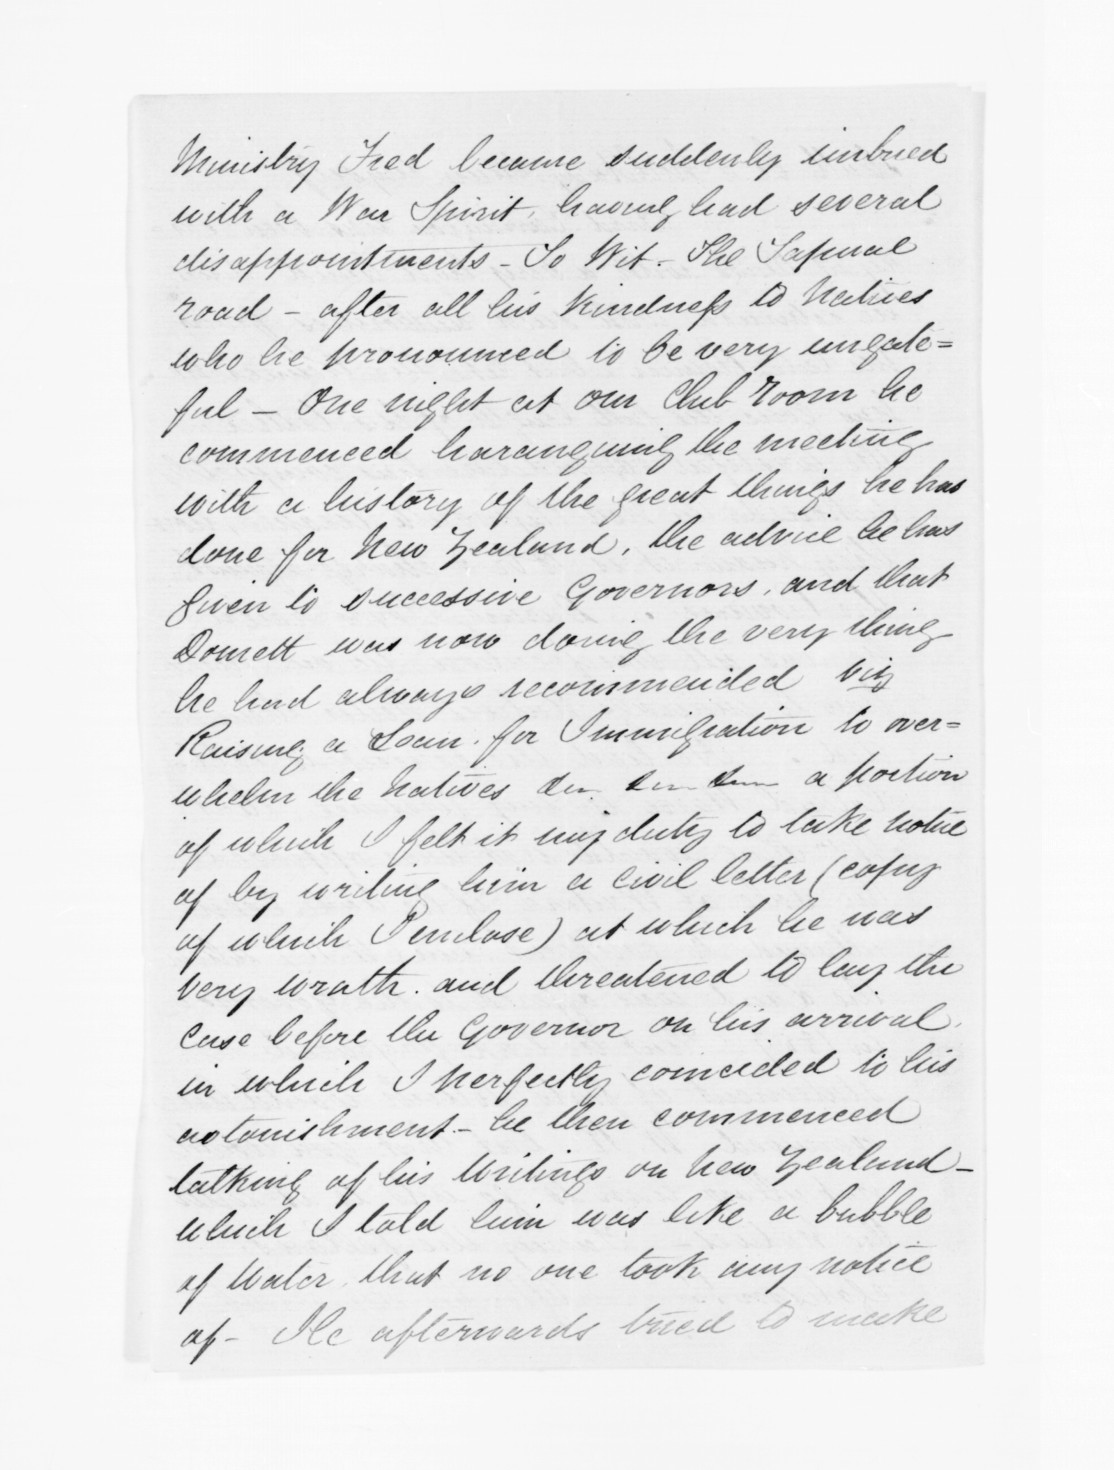 Ministry Fred became suddenly imbued
with a War Spirit, having had several
disappointments - To Wit - The
road - after all his kindness to Natives
who he pronounced to be very ungate=
ful - One night at our Club room he
commenced haranguing the meeting
with a history of the great things he has
done for New Zealand, the advice he has
given to successive Governors, and that
Domett was now doing the very thing
he had always recommended viz
Raising a Loan for Immigration to over=
whelm the Natives a portion
of which I felt it my duty to take notice
of by writing him a civil letter (copy
of which I enclose) at which he was
very wrath. and threatened to lay the
case before the Governor on his arrival.
in which I perfectly coincided to his
astonishment - he then commenced
talking of his Writings on New Zealand -
which I told him was like a bubble
of Water that no one took any notice
of - He afterwards tried to make